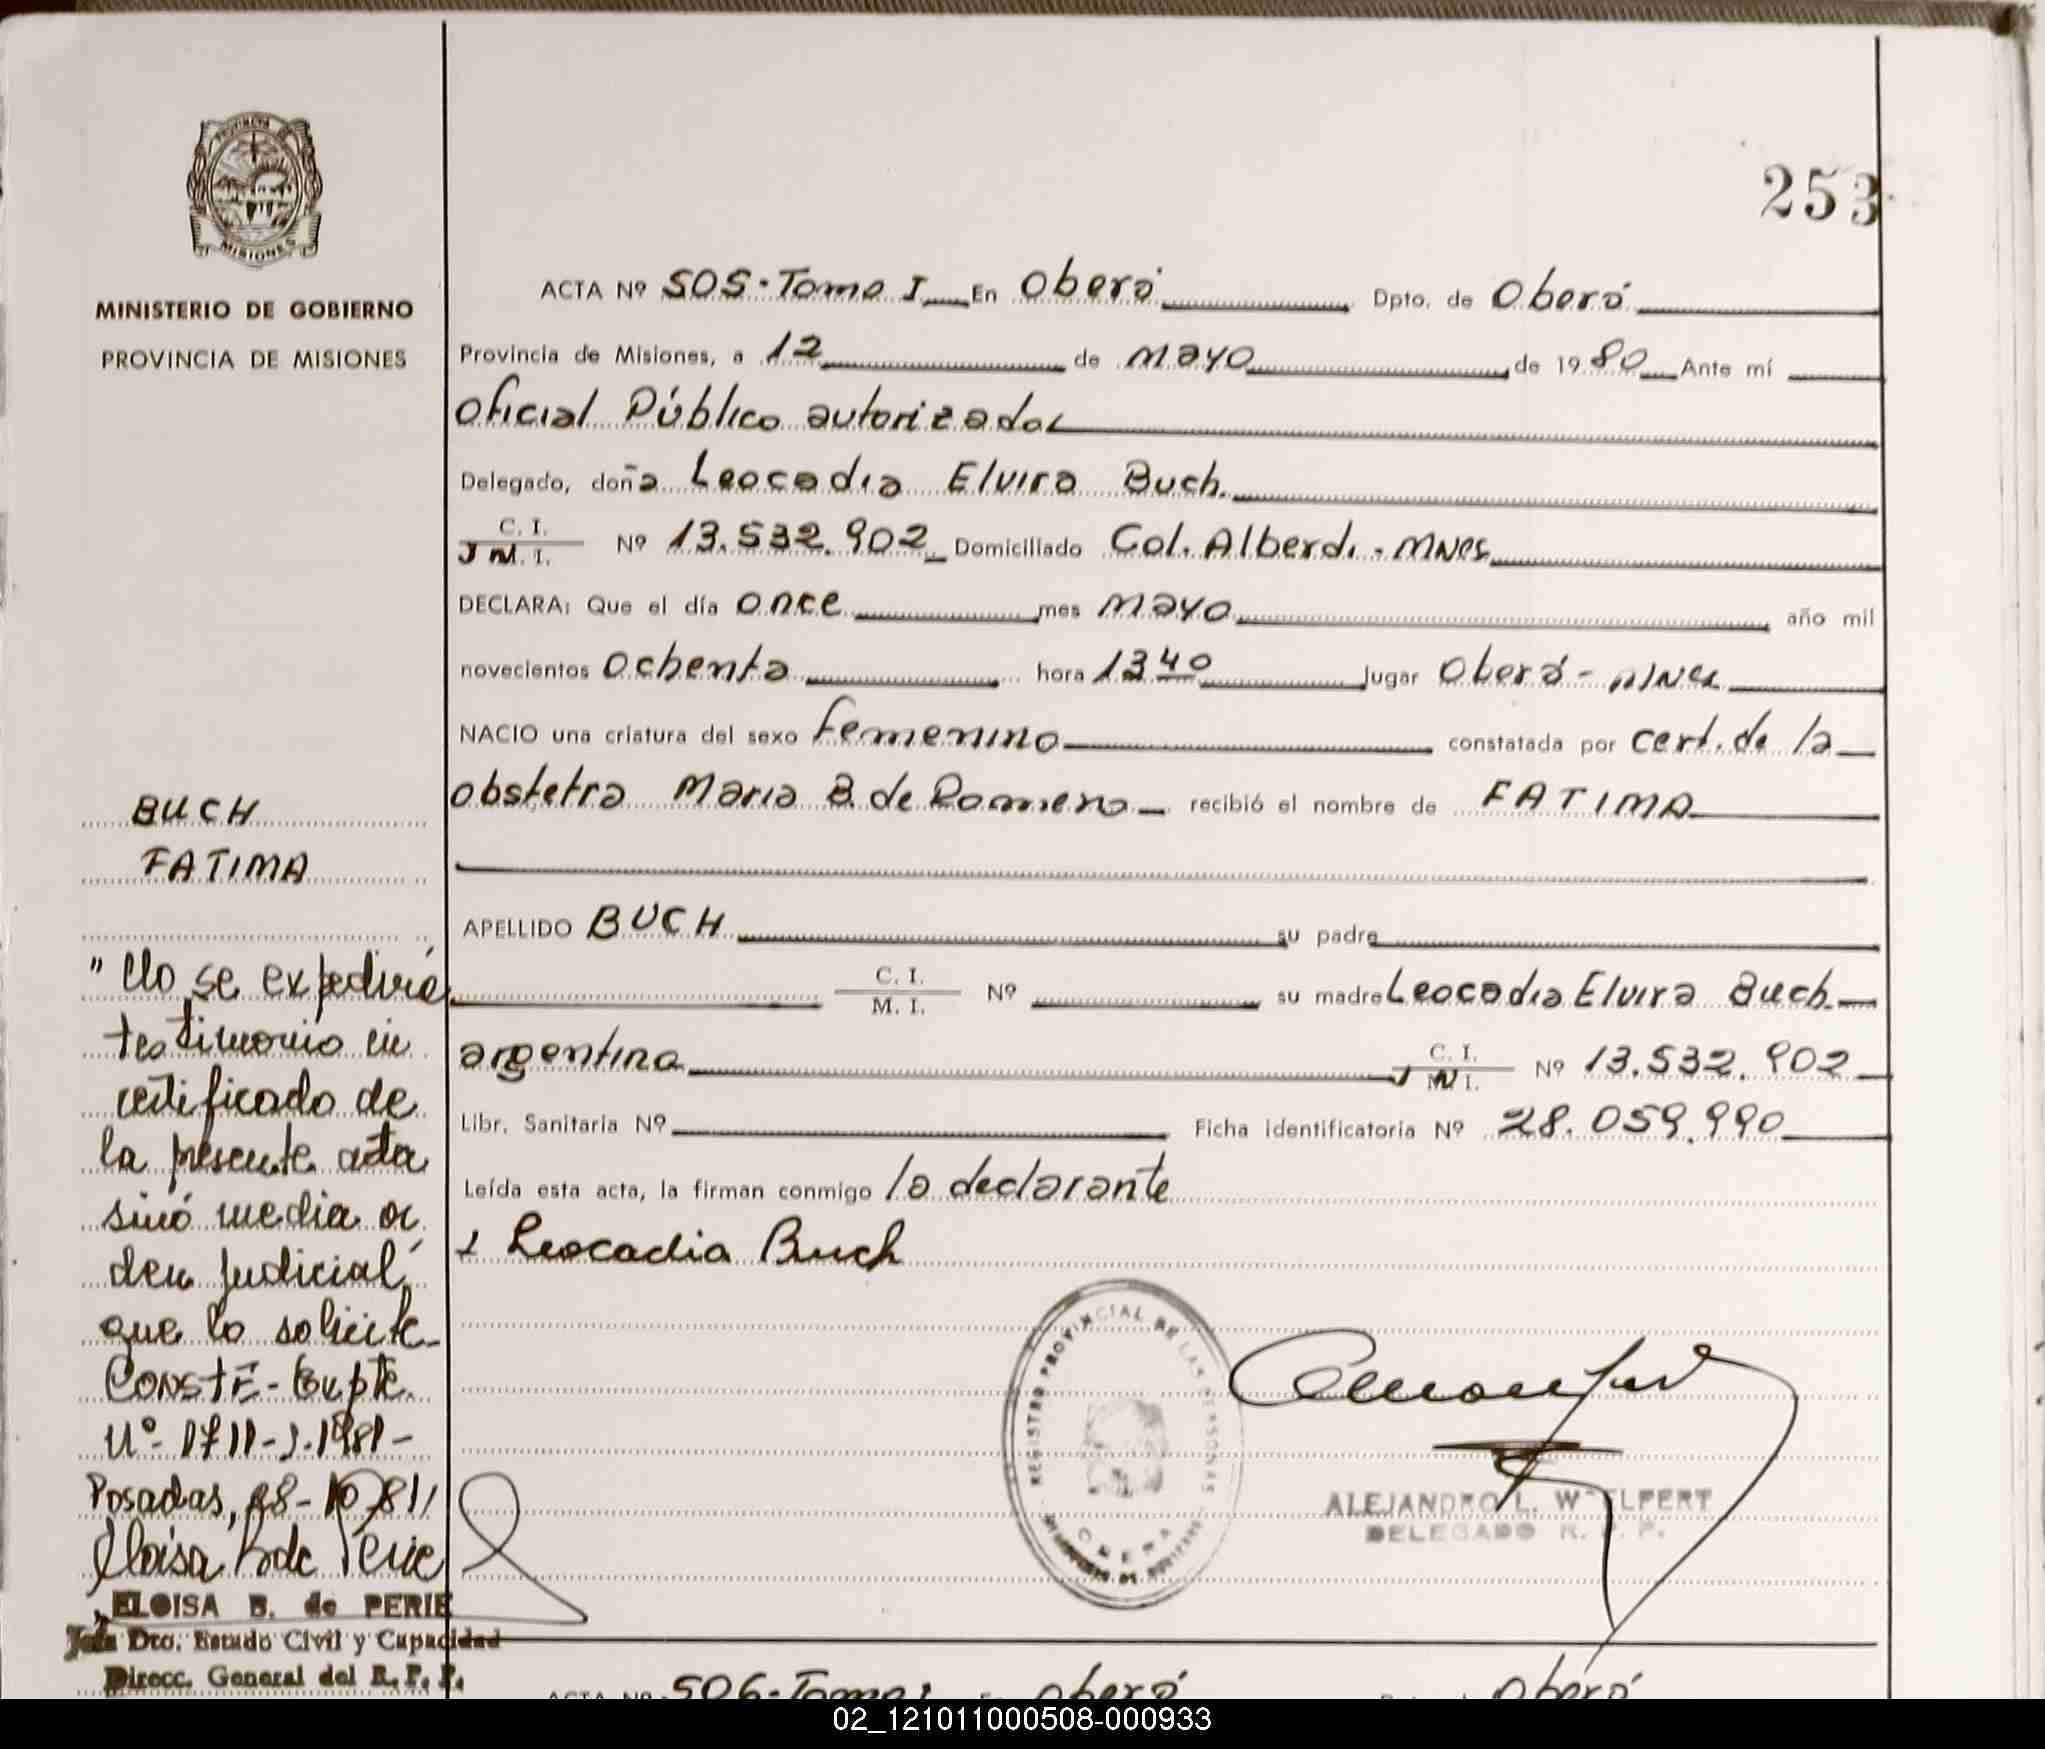 PROVINCIA DE
MISIONES
MINISTERIO DE GOBIERNO
PROVINCIA DE MISIONES
253
ACTA Nº 505-Tomo I En Oberá Dpto. de Oberá
Provincia de Misiones, a 12 de mayo de 1980 Ante mí
Oficial Público autorizado
Delegado, doña Leocadia Elvira Buch.
C. I.
M. I. Nº 13.532.902 Domiciliado Col. Alberdi - Mnes
DECLARA: Que el día once mes mayo año mil
novecientos ochenta hora 13 40 lugar Oberá - Mnes
NACIO una criatura del sexo femenino constatada por cert. de la
obstetra Maria B. de Romero recibió el nombre de FATIMA
APELLIDO BUCH su padre
C. I.
M. I. Nº su madre Leocadia Elvira Buch
argentina C. I. Nº 13.532.902
M I.
Libr. Sanitaria Nº Ficha identificatoria Nº 28.059.990
Leída esta acta, la firman conmigo la declarante
Leocadia Buch
REGISTRO PROVINCIAL DE LAS PERSONAS
OBERA
ALEJANDRO L. W
DELEGADO R. P. P.
BUCH
FATIMA
"No se expedirá
testimonio ni
certificado de
la presente acta
sinó media or
den judicial
que lo solicite-
CONSTE-Expte.
Nº 1711-J-1981-
Posadas, 28-10-81
Eloisa B de Perie
ELOISA B. de PERIE
Jefa Dto. Estado Civil y Capacidad
Direcc. General del R. P. P.
ACTA Nº 506-Tomo I En Oberá Oberá
02_121011000508-000933